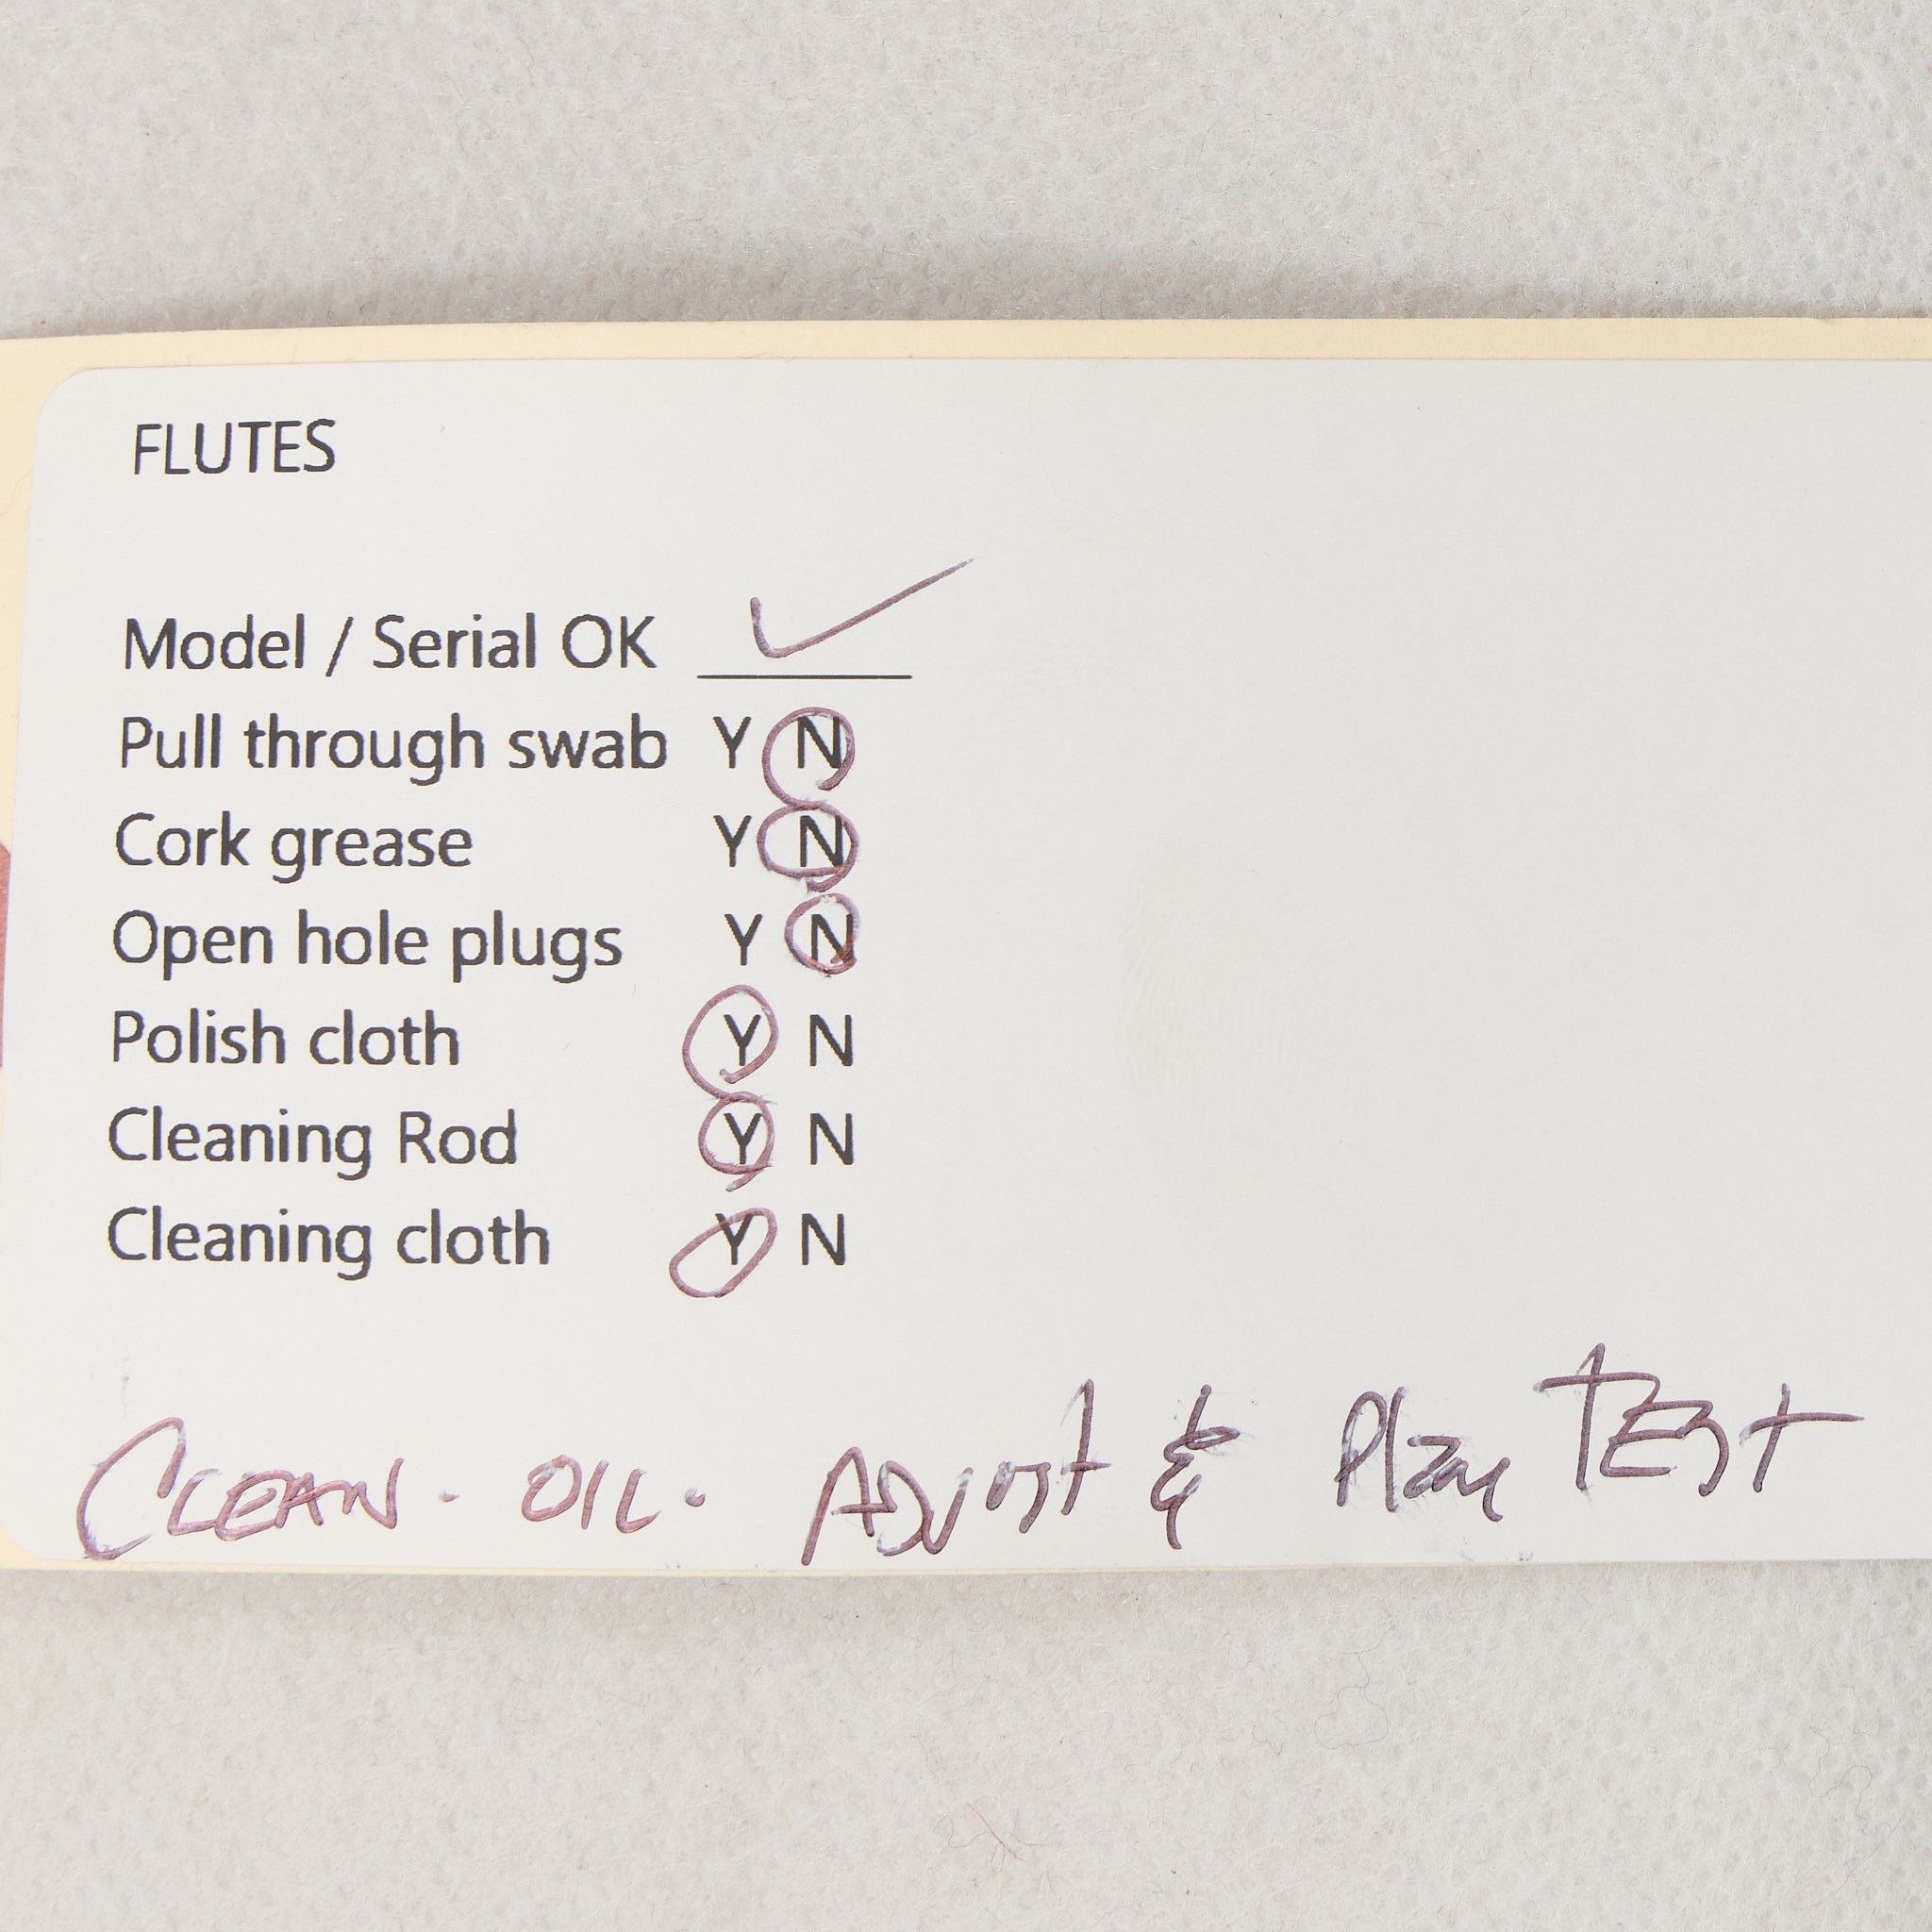 FLUTES
Model / Serial OK ✓
Pull through swab Y N
Cork grease Y N
Open hole plugs Y N
Polish cloth Y N
Cleaning Rod Y N
Cleaning cloth Y N
CLEAN. OIL. ADJUST & Play TEST